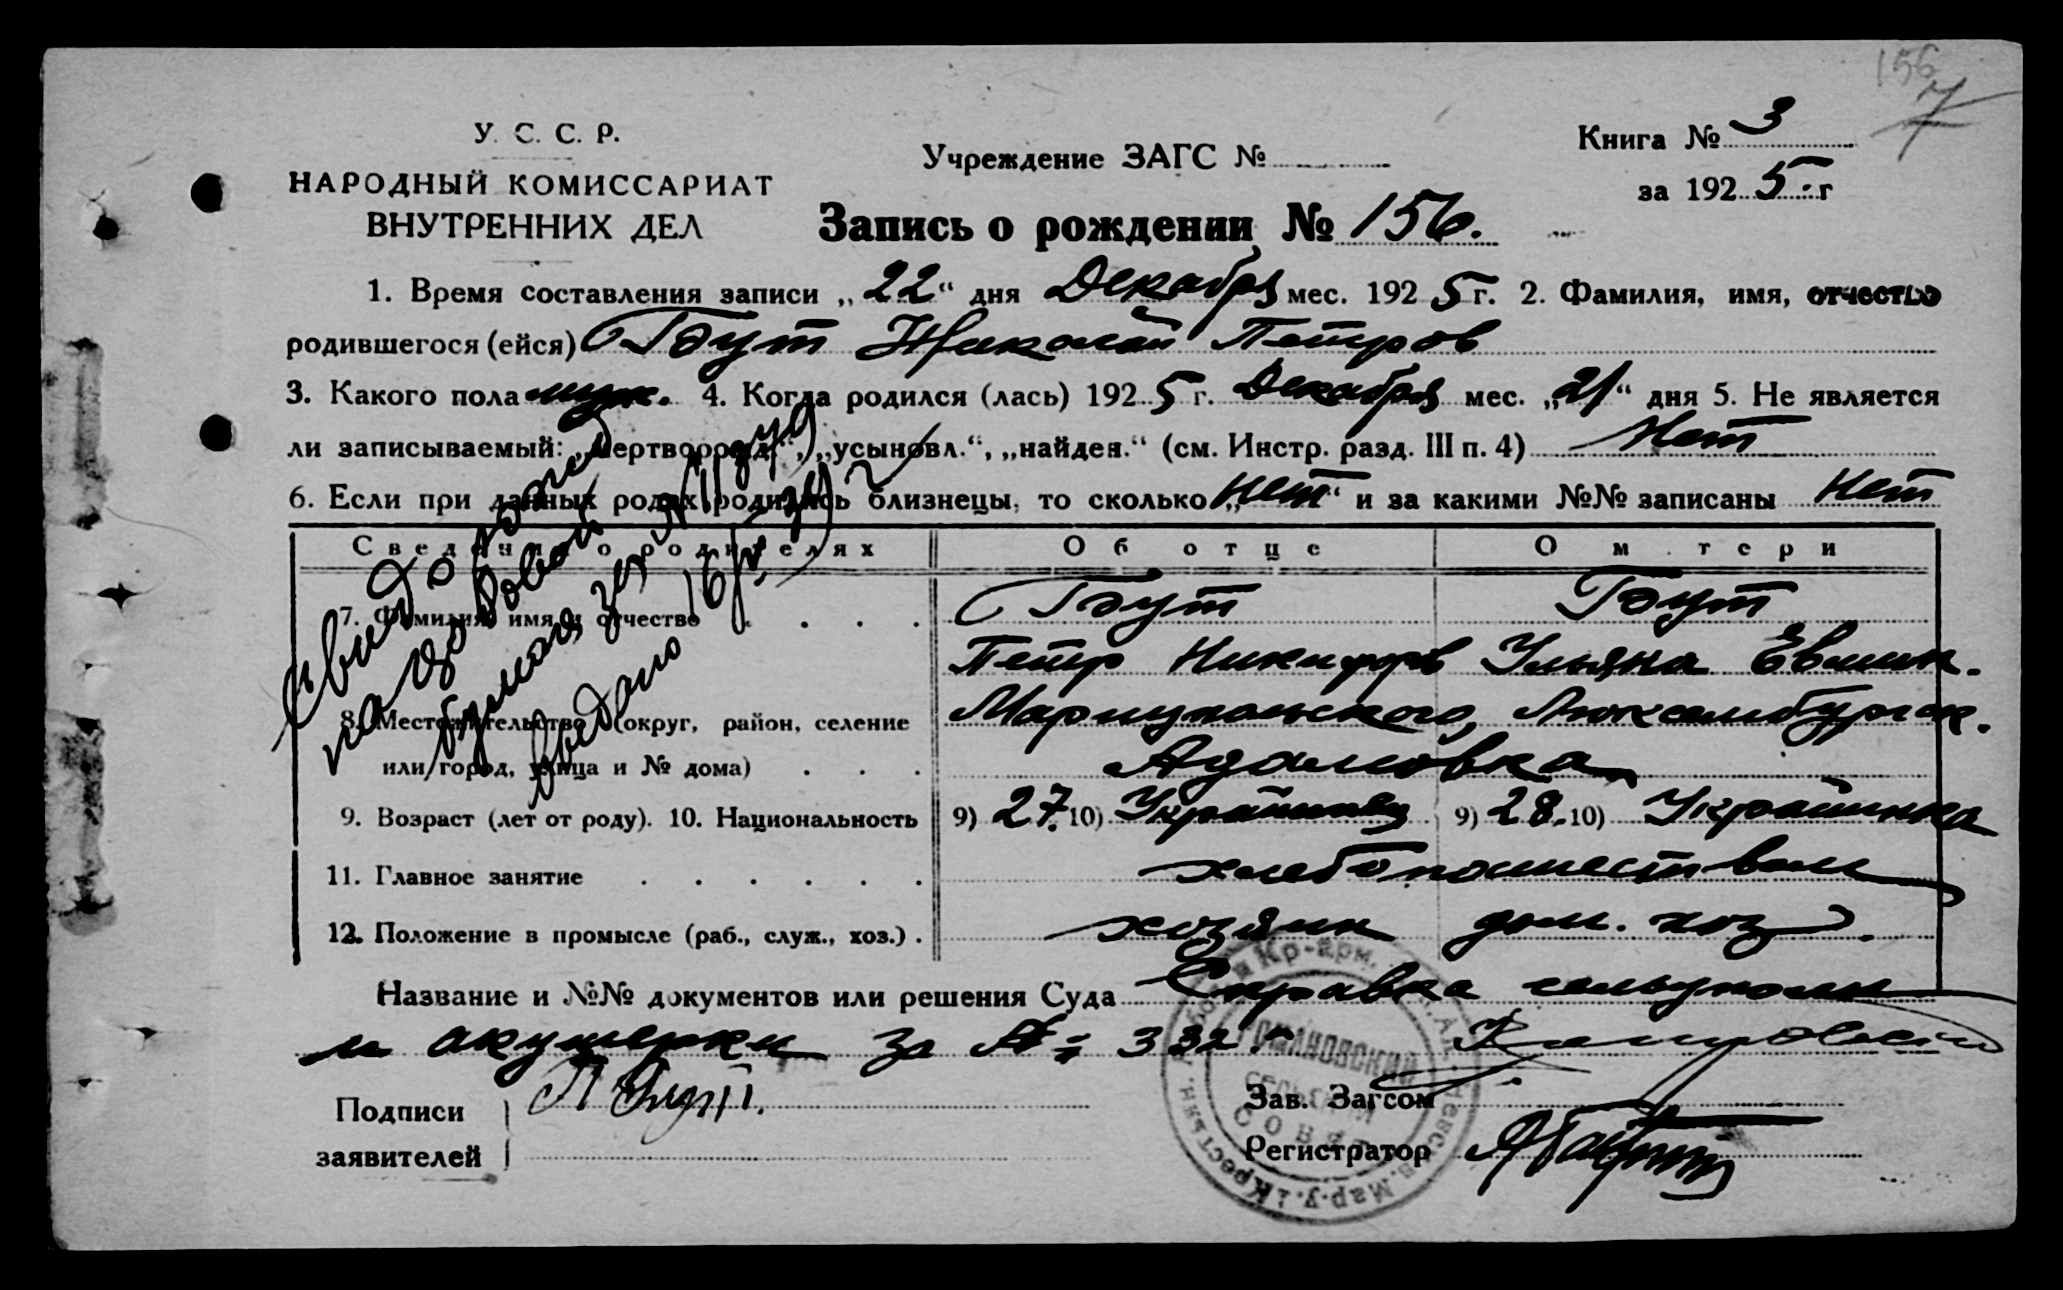 156
7
У. С. С. Р.
НАРОДНЫЙ КОМИССАРИАТ
ВНУТРЕННИХ ДЕЛ
Учреждение ЗАГС №
Книга № 3
за 1925 г
Запись о рождении № 156.
1. Время составления записи „22“ дня Декабря мес. 1925 г. 2. Фамилия, имя, отчество
родившегося (ейся) Гаут Николай Петров
3. Какого пола муж. 4. Когда родился (лась) 1925 г. Декабря мес. „21“ дня 5. Не является
ли записываемый: „мертворожд.“, „усыновл.“, „найден.“ (см. Инстр. разд. III п. 4) Нет
6. Если при данных родах родились близнецы, то сколько „нет“ и за какими №№ записаны Нет
Сведения о родителях Об отце О матери
7. Фамилия, имя и отчество Гаут Гаут
Петр Никифоров Ульяна Евмин.
8. Местожительство (округ, район, селение Мариупольского, Люксембургск.
или город, улица и № дома) Адамовка
9. Возраст (лет от роду). 10. Национальность 9) 27. 10) Украинец 9) 28. 10) Украинка
11. Главное занятие хлебопашеством
12. Положение в промысле (раб., служ., хоз.) хозяин дом. хоз.
Название и №№ документов или решения Суда Справка
и акушерки за № 332.
Подписи
заявителей
Зав. Загсом
Регистратор